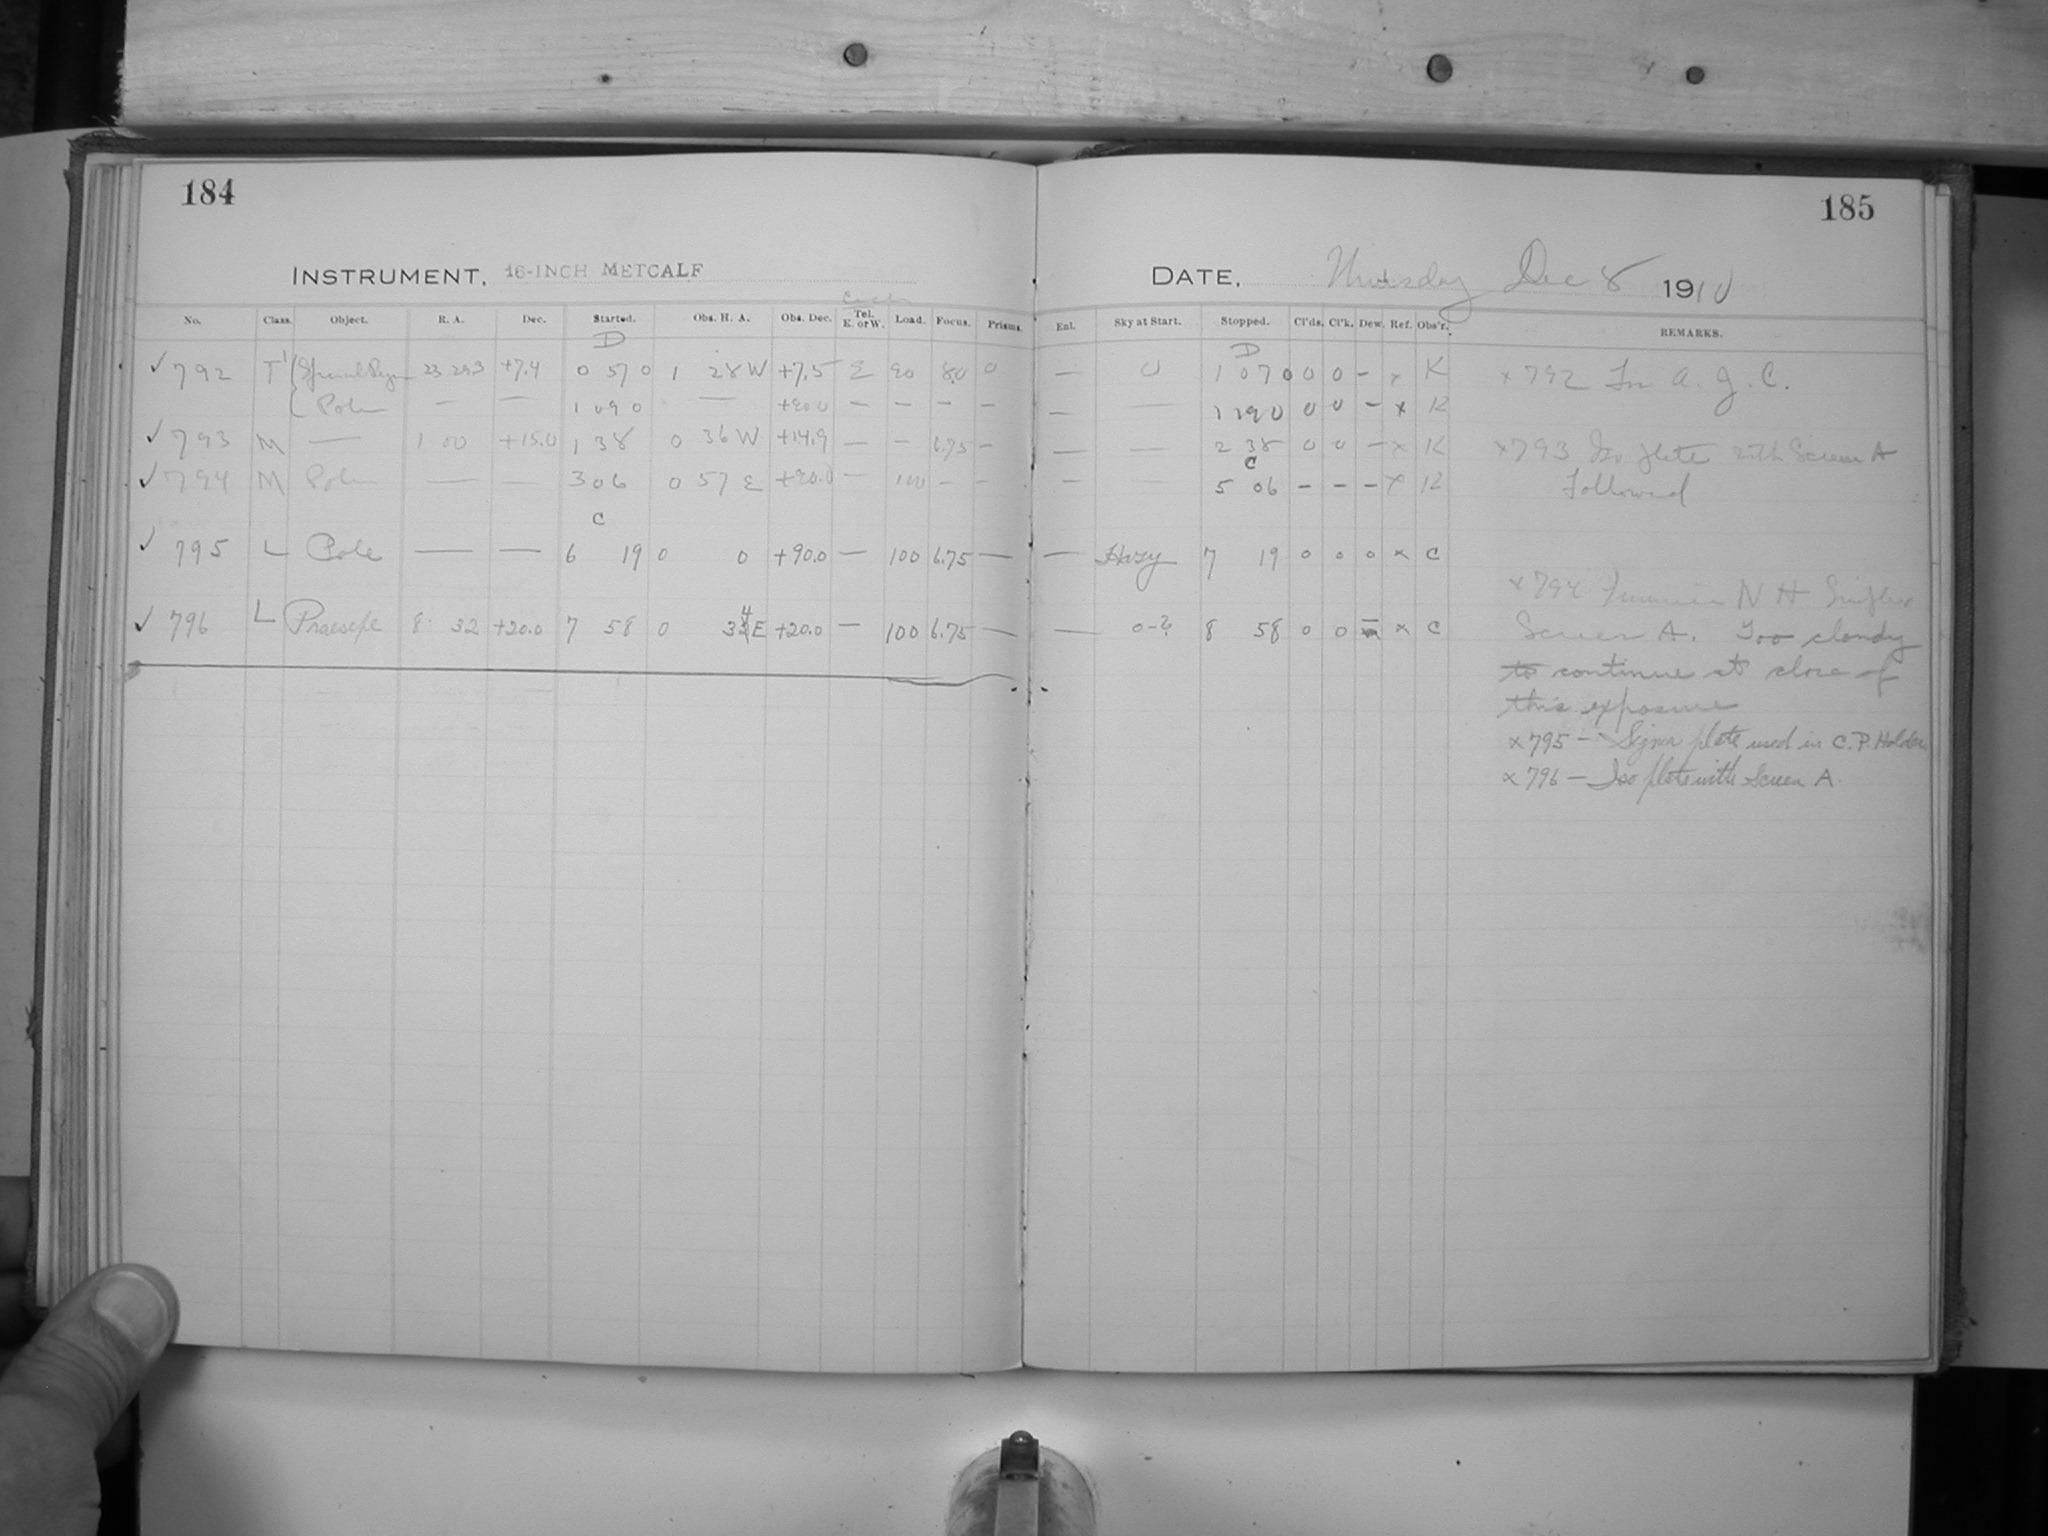 184
INSTRUMENT, 16-INCH METCALF
No. Class. Object. R. A. Dec. Started. Obs. H. A. Obs. Dec. Tel. E. or W. Load. Focus. Prisms.
D
✓ 792 T' 23 29.3 +7.4 0 57 0 1 28 W +7.5 E 90 8.0 0
Pole — — 1 09 0 — +90.0 — — — —
✓ 793 M — 1 00 +15.0 1 38 0 36 W +14.9 — — 6.75 —
✓ 794 M Pole — — 3 06 0 57 E +90.0 — 100 — —
C
✓ 795 L Pole — — 6 19 0 0 +90.0 — 100 6.75 —
✓ 796 L Praesepe 8 32 +20.0 7 58 0 34 E +20.0 — 100 6.75 —
185
DATE, Thursday Dec 8 1910
Enl. Sky at Start. Stopped. Cl'ds. Cl'k. Dew. Ref. Obs'r. REMARKS.
D
— 0 1 07 0 0 0 - x K x 792 In A. J. C.
— — 1 19 0 0 0 - x K
— — 2 38 0 0 - x K x 793 Iso plate with Screen A
C
— — 5 06 - - - x K Followed
— Hazy 7 19 0 0 0 x C
x 794
— 0-2 8 58 0 0 - x C Screen A. Too cloudy
to continue at close of
this exposure
x 795 — Sigma plate used in C. P. Holder
x 796 — Iso plate with Screen A.